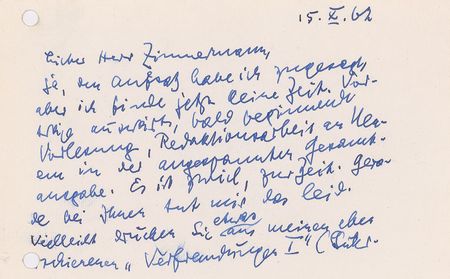 15. X. 62
Lieber Herr Zimmermann,
ja, den Aufsatz habe ich zugesagt,
aber ich finde jetzt keine Zeit. Vor-
träge auswärts, bald beginnende
Vorlesung, Redaktionsarbeit an
in der angespannten Gesamt-
ausgabe. Es ist zuviel, zur Zeit. Gera-
de bei Ihnen tut mir das leid.
Vielleicht drucken Sie etwas aus meinen eben
erschienenen „Verfremdungen I" (Bibl.